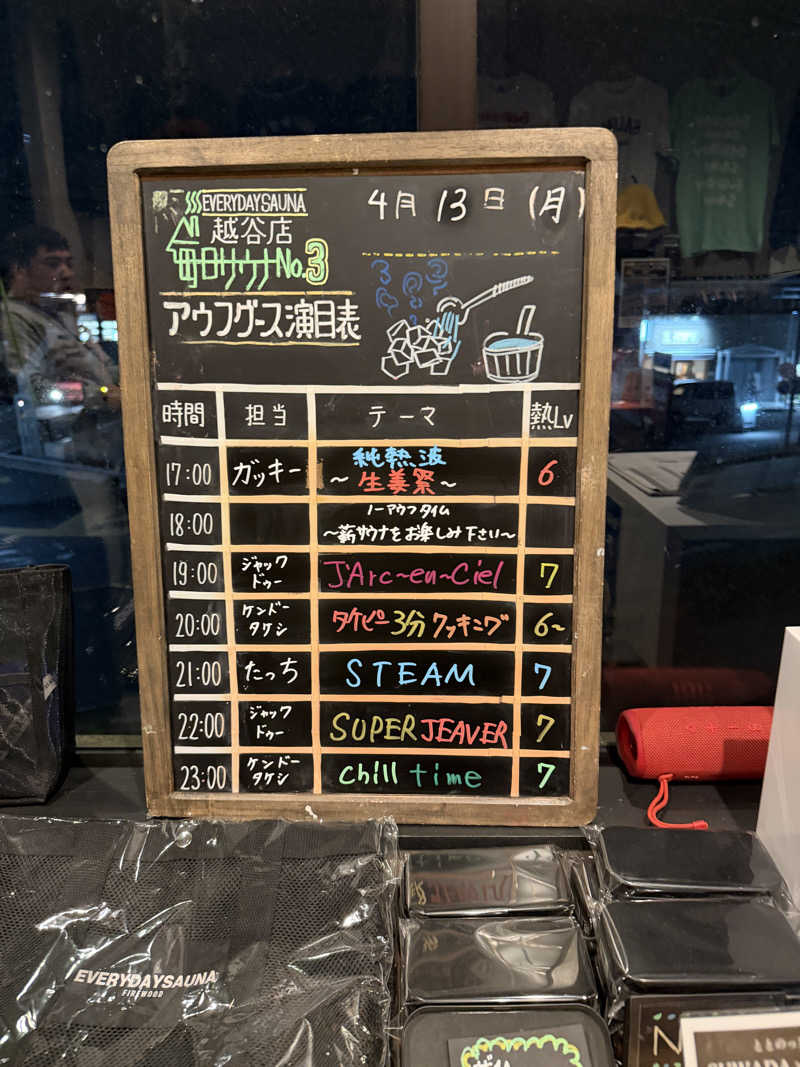 EVERYDAYSAUNA
越谷店
毎日サウナNo.3
アウフグース演目表
4月 13日 (月)
時間 担当 テーマ 熱Lv
17:00 ガッキー 純熱波 ～生姜祭～ 6
18:00 ノーアウフタイム
～薪サウナをお楽しみ下さい～
19:00 ジャックドゥー J'Arc~en~Ciel 7
20:00 ケンドータケシ タケピー3分クッキング 6~
21:00 たっち STEAM 7
22:00 ジャックドゥー SUPER JEAVER 7
23:00 ケンドータケシ chill time 7
EVERYDAYSAUNA
FIREWOOD